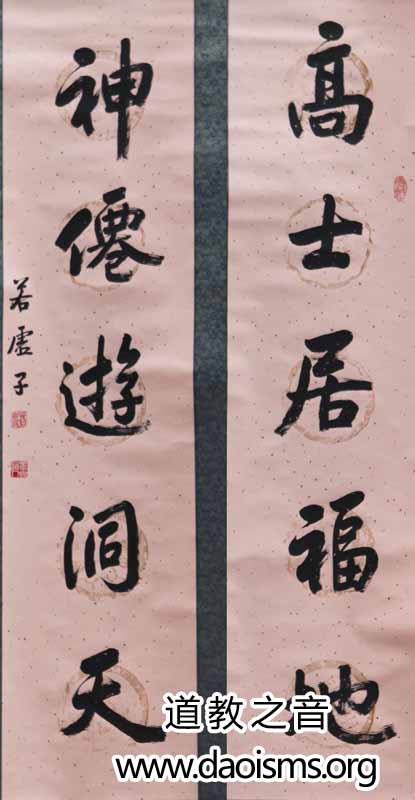 高士居福地
神僊遊洞天
若虛子
道教之音
www.daoisms.org